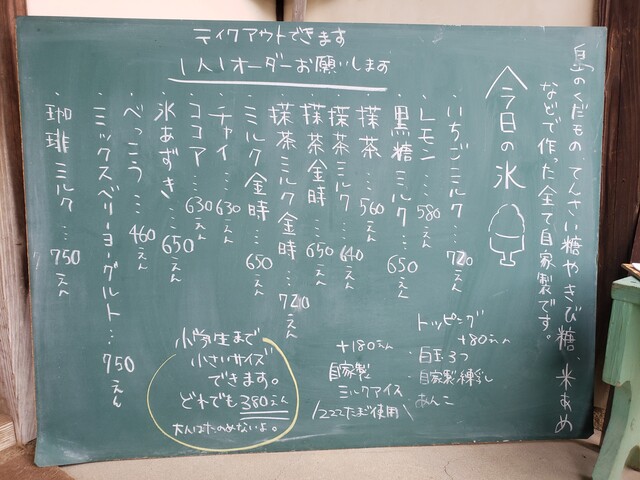 テイクアウトできます
1人1オーダーお願いします
島のくだもの、てんさい糖やきび糖、米あめ
などで作った全て自家製です。
今日の氷
・いちごミルク…720えん
・レモン…580えん
・黒糖ミルク…650
・抹茶…560えん
・抹茶ミルク…640えん
・抹茶金時…650えん
・抹茶ミルク金時…720えん
・ミルク金時…650えん
・チャイ…630えん
・ココア…630えん
・氷あずき…650えん
・べっこう…460えん
・ミックスベリーヨーグルト…750えん
・珈琲ミルク…750えん
トッピング
+80えん
・白玉3つ
・自家製練乳
・あんこ
+180えん
・自家製
ミルクアイス
小学生まで
小さいサイズ
できます。
どれでも380えん
大人はたのめないよ。